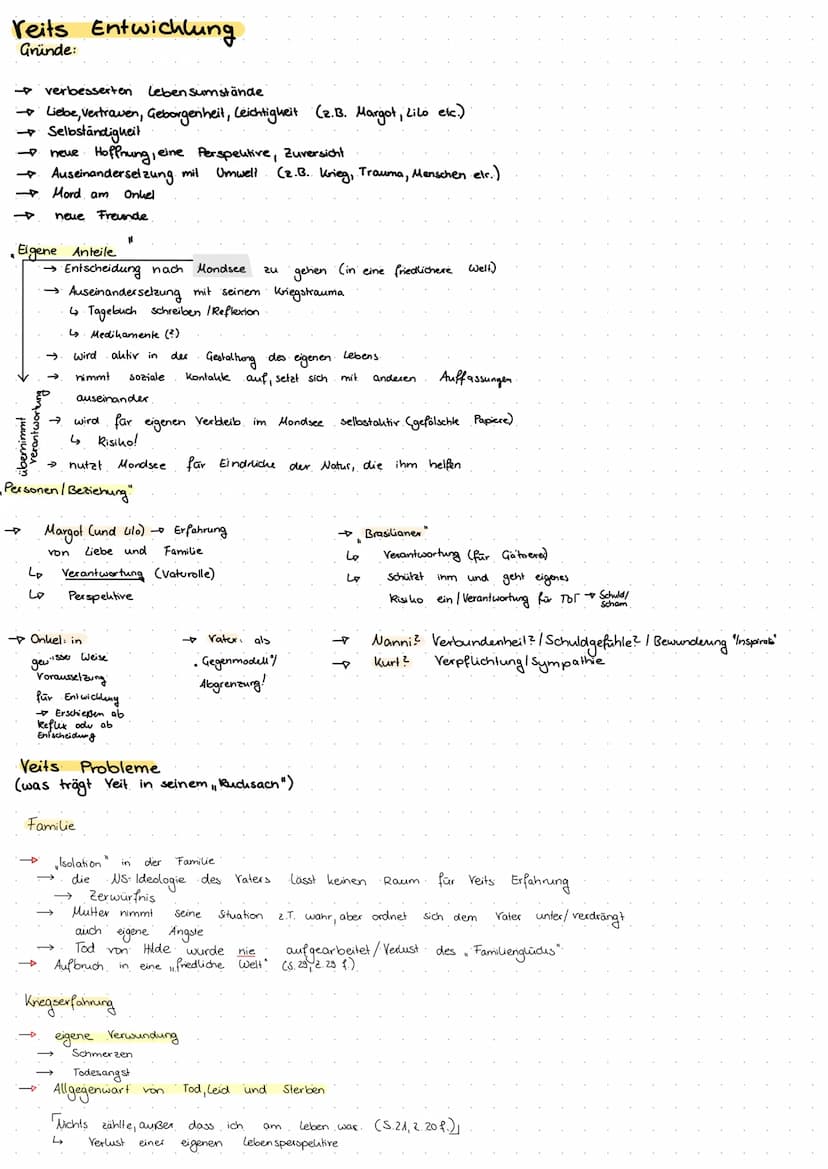 Veits Entwicklung
Gründe:
→ verbesserten Lebensumstände
→ Liebe, Vertrauen, Geborgenheit, Leichtigkeit (z.B. Margot, Lilo etc.)
→ Selbständigkeit
→ neue Hoffnung, eine Perspektive, Zuversicht
→ Auseinandersetzung mit Umwelt (z.B. Krieg, Trauma, Menschen etc.)
→ Mord am Onkel
→ neue Freunde
„Eigene Anteile"
→ Entscheidung nach Mondsee zu gehen (in eine friedlichere Welt)
→ Auseinandersetzung mit seinem Kriegstrauma
↳ Tagebuch schreiben / Reflexion
↳ Medikamente (?)
→ wird aktiv in der Gestaltung des eigenen Lebens
→ nimmt soziale Kontakte auf, setzt sich mit anderen Auffassungen
auseinander
→ wird für eigenen Verbleib im Mondsee selbstaktiv (gefälschte Papiere)
↳ Risiko!
→ nutzt Mondsee für Eindrücke der Natur, die ihm helfen
übernimmt
Verantwortung
„Personen / Beziehung"
→ Margot (und Lilo) → Erfahrung
von Liebe und Familie
↳ Verantwortung (Vaturolle)
↳ Perspektive
→ „Brasilianer"
↳ Verantwortung (für Gätnerei)
↳ schützt ihm und geht eigenes
Risiko ein / Verantwortung für Tot → Schuld/
Scham
→ Onkel: in
gewisser Weise
Voraussetzung
für Entwicklung
→ Erschießen ob
Reflex odu ob
Entscheidung
→ Vater: als
„Gegenmodell"/
Abgrenzung!
→ Nanni? Verbundenheit? / Schuldgefühle? / Bewunderung "Inspirat."
→ Kurt? Verpflichtung / Sympathie
Veits Probleme
(was trägt Veit in seinem „Rucksach")
Familie
→ „Isolation" in der Familie
→ die NS-Ideologie des Vaters lässt keinen Raum für Veits Erfahrung
→ Zerwürfnis
→ Mutter nimmt seine Situation z.T. wahr, aber ordnet sich dem Vater unter/verdrängt
auch eigene Ängste
→ Tod von Hilde wurde nie aufgearbeitet / Verlust des „Familienglücks"
→ Aufbruch in eine „friedliche Welt" (S. 29, Z. 29 f.)
Kriegserfahrung
→ eigene Verwundung
→ Schmerzen
→ Todesangst
→ Allgegenwart von Tod, Leid und Sterben
「Nichts zählte, außer dass ich am Leben war. (S. 21, Z. 20 f.)」
↳ Verlust einer eigenen Lebensperspektive